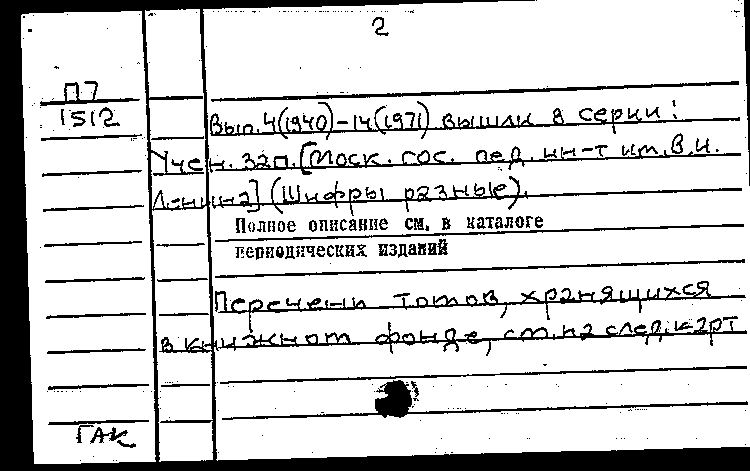 2
П7
1512
Вып. 4(1940)-14(1971) вышли в серии:
Учен. зап. [Моск. гос. пед. ин-т им. В.И.
Ленина] (Шифры разные).
Полное описание см. в каталоге
периодических изданий
Перечень томов, хранящихся
в книжном фонде, см. на след. карт
ГАК